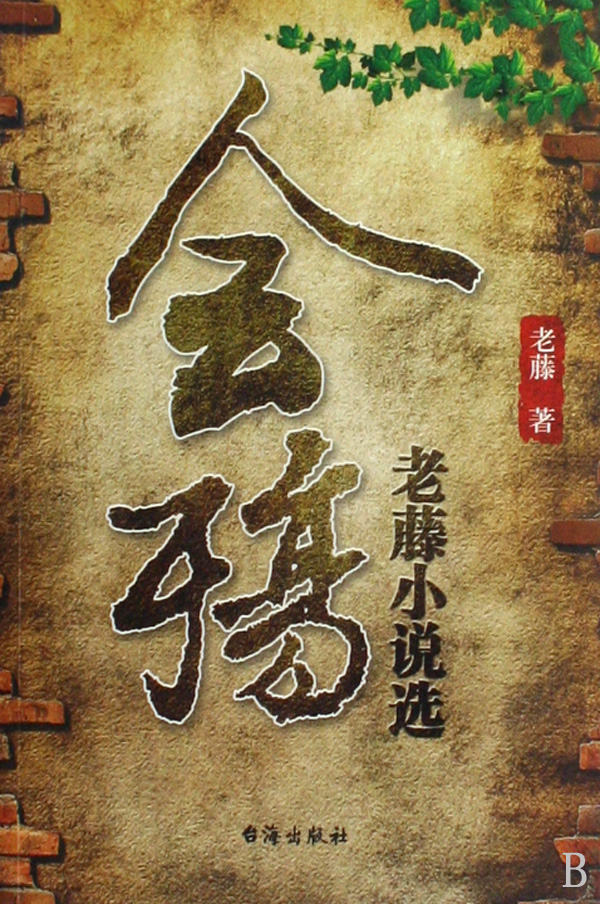 会殇
老藤 著
老藤小说选
台海出版社
B